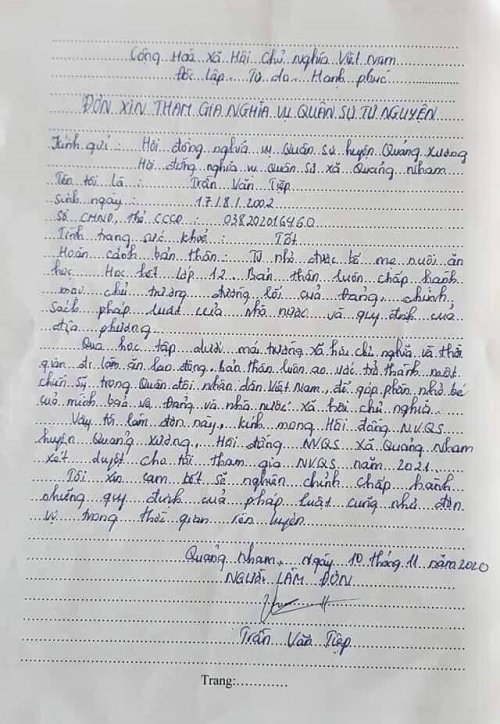 Cộng Hoà Xã Hội Chủ nghĩa Việt Nam
Độc Lập Tự do Hạnh phúc
ĐƠN XIN THAM GIA NGHĨA VỤ QUÂN SỰ TỰ NGUYỆN
Kính gửi : Hội đồng nghĩa vụ Quân sự huyện Quảng Xương
Hội đồng nghĩa vụ Quân sự xã Quảng Nham
Tên tôi là : Trần Văn Tiệp
Sinh ngày : 17/8/2002
Số CMND, thẻ CCCD : 038202016460
Tình trạng sức khoẻ : Tốt
Hoàn cảnh bản thân : Từ nhỏ được bố mẹ nuôi ăn
học. Học hết lớp 12. Bản thân luôn chấp hành
mọi chủ trương đường lối của Đảng, chính
sách pháp luật của nhà nước và quy định của
địa phương.
Qua học tập dưới mái trường xã hội chủ nghĩa và thời
gian đi làm ăn lao động, bản thân luôn ao ước trở thành một
chiến sỹ trong Quân đội nhân dân Việt Nam, để góp phần nhỏ bé
của mình bảo vệ Đảng và nhà nước xã hội chủ nghĩa.
Vậy tôi làm đơn này, kính mong Hội đồng NVQS
huyện Quảng Xương, Hội đồng NVQS xã Quảng Nham
xét duyệt cho tôi tham gia NVQS năm 2021.
Tôi xin cam kết sẽ nghiên chỉnh chấp hành
những quy định của pháp luật cũng như đơn
vị trong thời gian rèn luyện.
Quảng Nham, ngày 10 tháng 11 năm 2020
NGƯỜI LÀM ĐƠN
Trần Văn Tiệp
Trang: